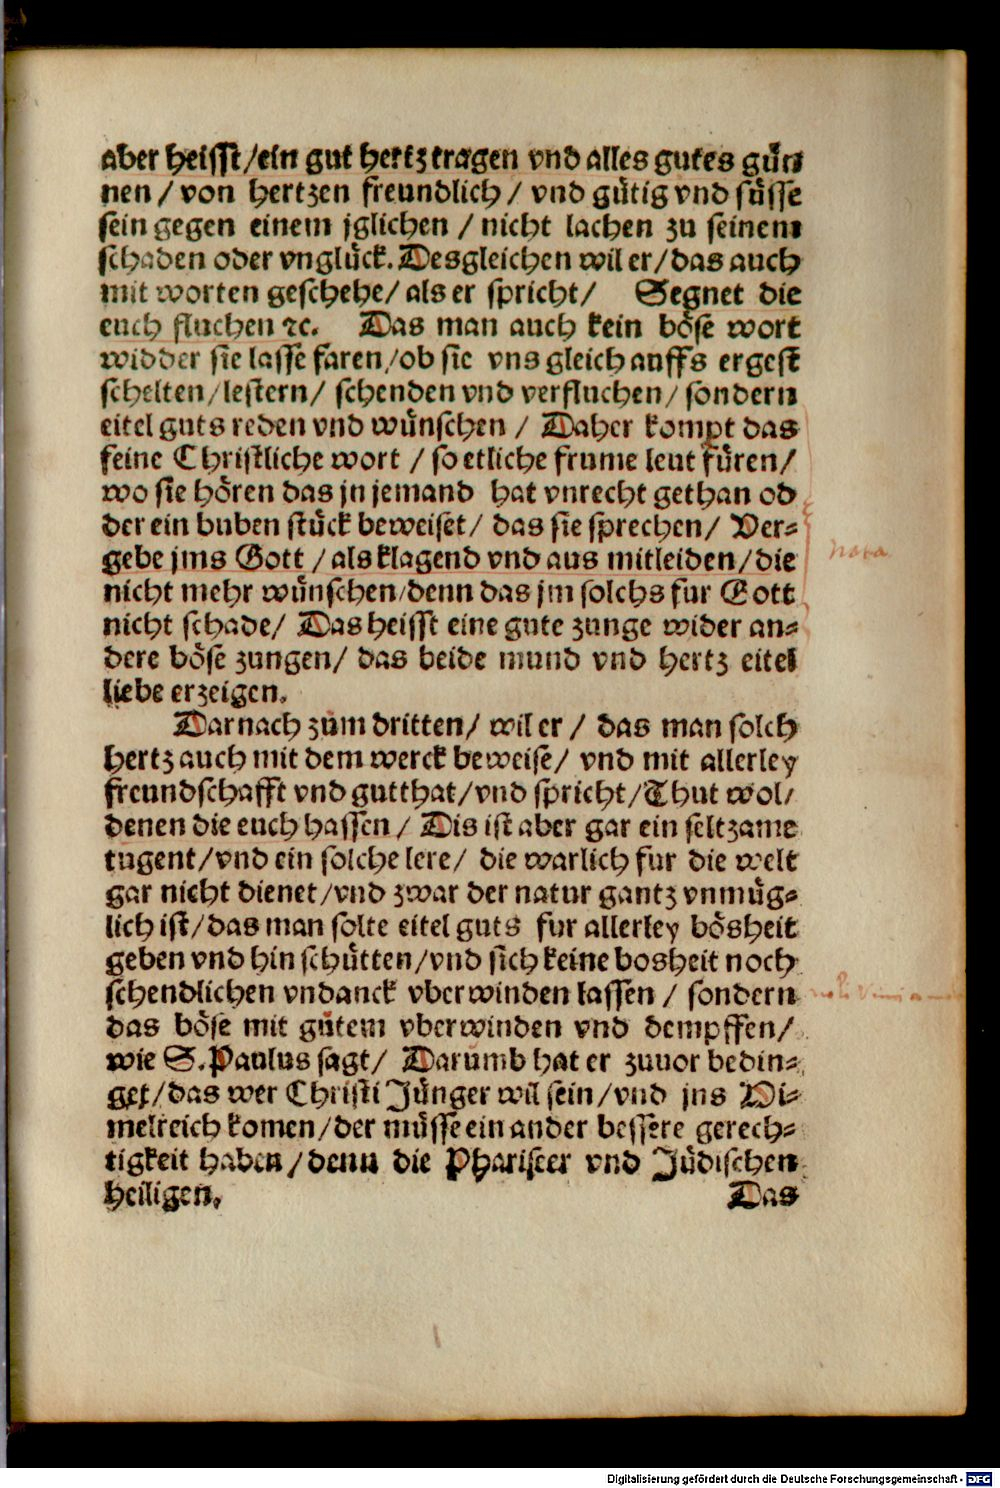 aber heisst/ein gut hertz tragen vnd alles gutes gün
nen / von hertzen freundlich / vnd gütig vnd süsse
sein gegen einem jglichen / nicht lachen zu seinem
schaden oder vnglück. Desgleichen wil er/das auch
mit worten geschehe/ als er spricht/ Segnet die
euch fluchen ꝛc. Das man auch kein böse wort
widder sie lasse faren/ob sie vns gleich auffs ergest
schelten/lestern/ schenden vnd verfluchen/sondern
eitel guts reden vnd wünschen / Daher kompt das
feine Christliche wort / so etliche frume leut füren/
wo sie hören das jn jemand hat vnrecht gethan od
der ein buben stück beweiset/ das sie sprechen/ Ver-
gebe jms Gott /als klagend vnd aus mitleiden/die
nota
nicht mehr wünschen/denn das jm solchs fur Gott
nicht schade/ Das heisst eine gute zunge wider an-
dere böse zungen/ das beide mund vnd hertz eitel
liebe erzeigen.
Darnach zum dritten/ wil er / das man solch
hertz auch mit dem werck beweise/ vnd mit allerley
freundschafft vnd gutthat/vnd spricht/Thut wol/
denen die euch hassen/ Dis ist aber gar ein seltzame
tugent/vnd ein solche lere/ die warlich fur die welt
gar nicht dienet/vnd zwar der natur gantz vnmüg-
lich ist/das man solte eitel guts fur allerley bösheit
geben vnd hin schütten/vnd sich keine bosheit noch
schendlichen vndanck vberwinden lassen / sondern
das böse mit gütem vberwinden vnd dempffen/
wie S.Paulus sagt/ Darumb hat er zuuor bedin-
get/das wer Christi Jünger wil sein/vnd jns Di-
melreich komen/der müsse ein ander bessere gerech-
tigkeit haben/denn die Phariseer vnd Jüdischen
heiligen. Das
Digitalisierung gefördert durch die Deutsche Forschungsgemeinschaft - DFG